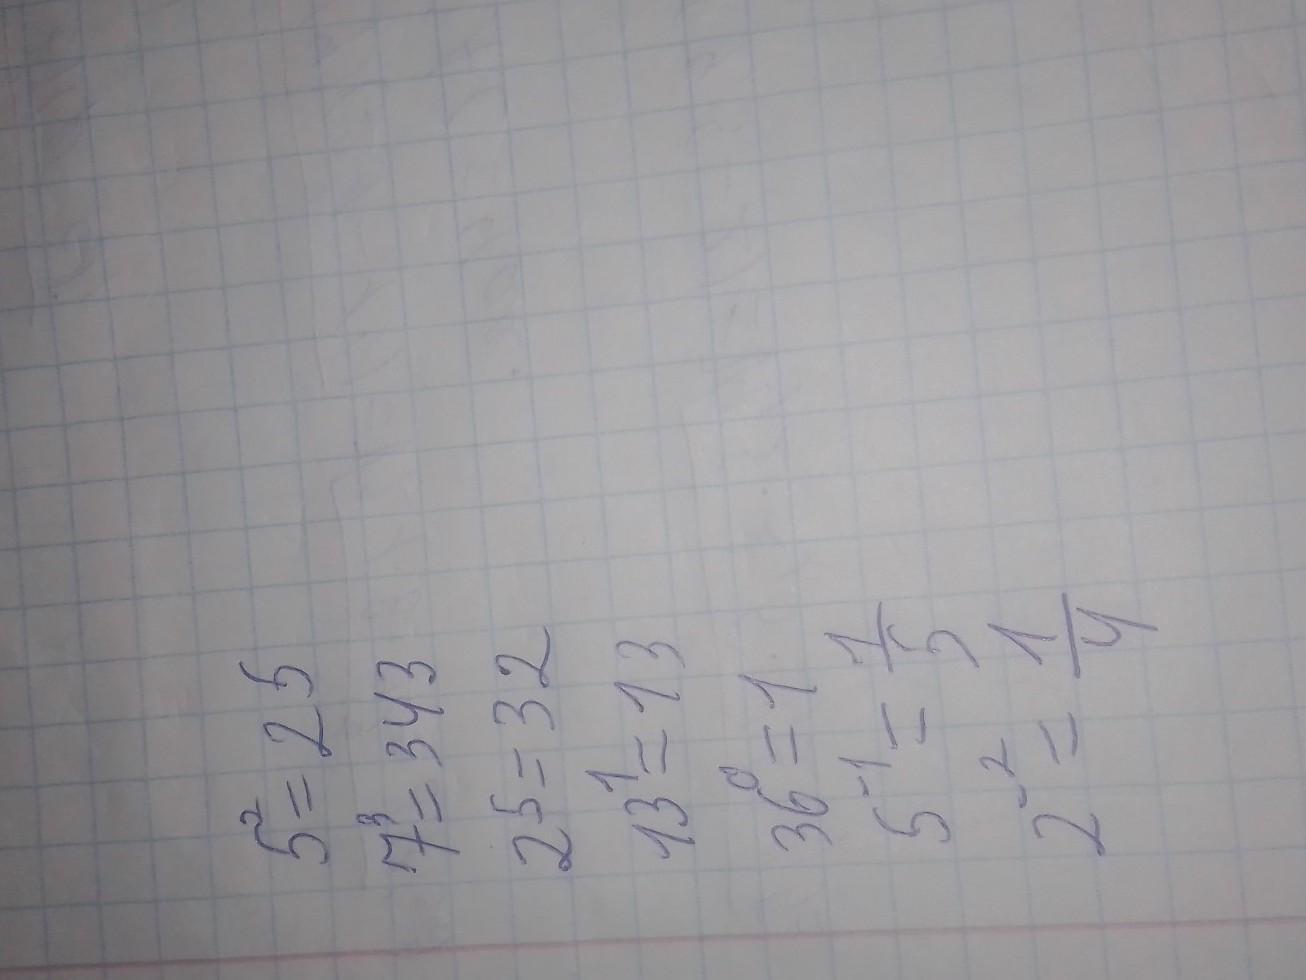 5² = 25
7³ = 343
2⁵ = 32
13¹ = 13
36⁰ = 1
5⁻¹ = 1/5
2⁻² = 1/4